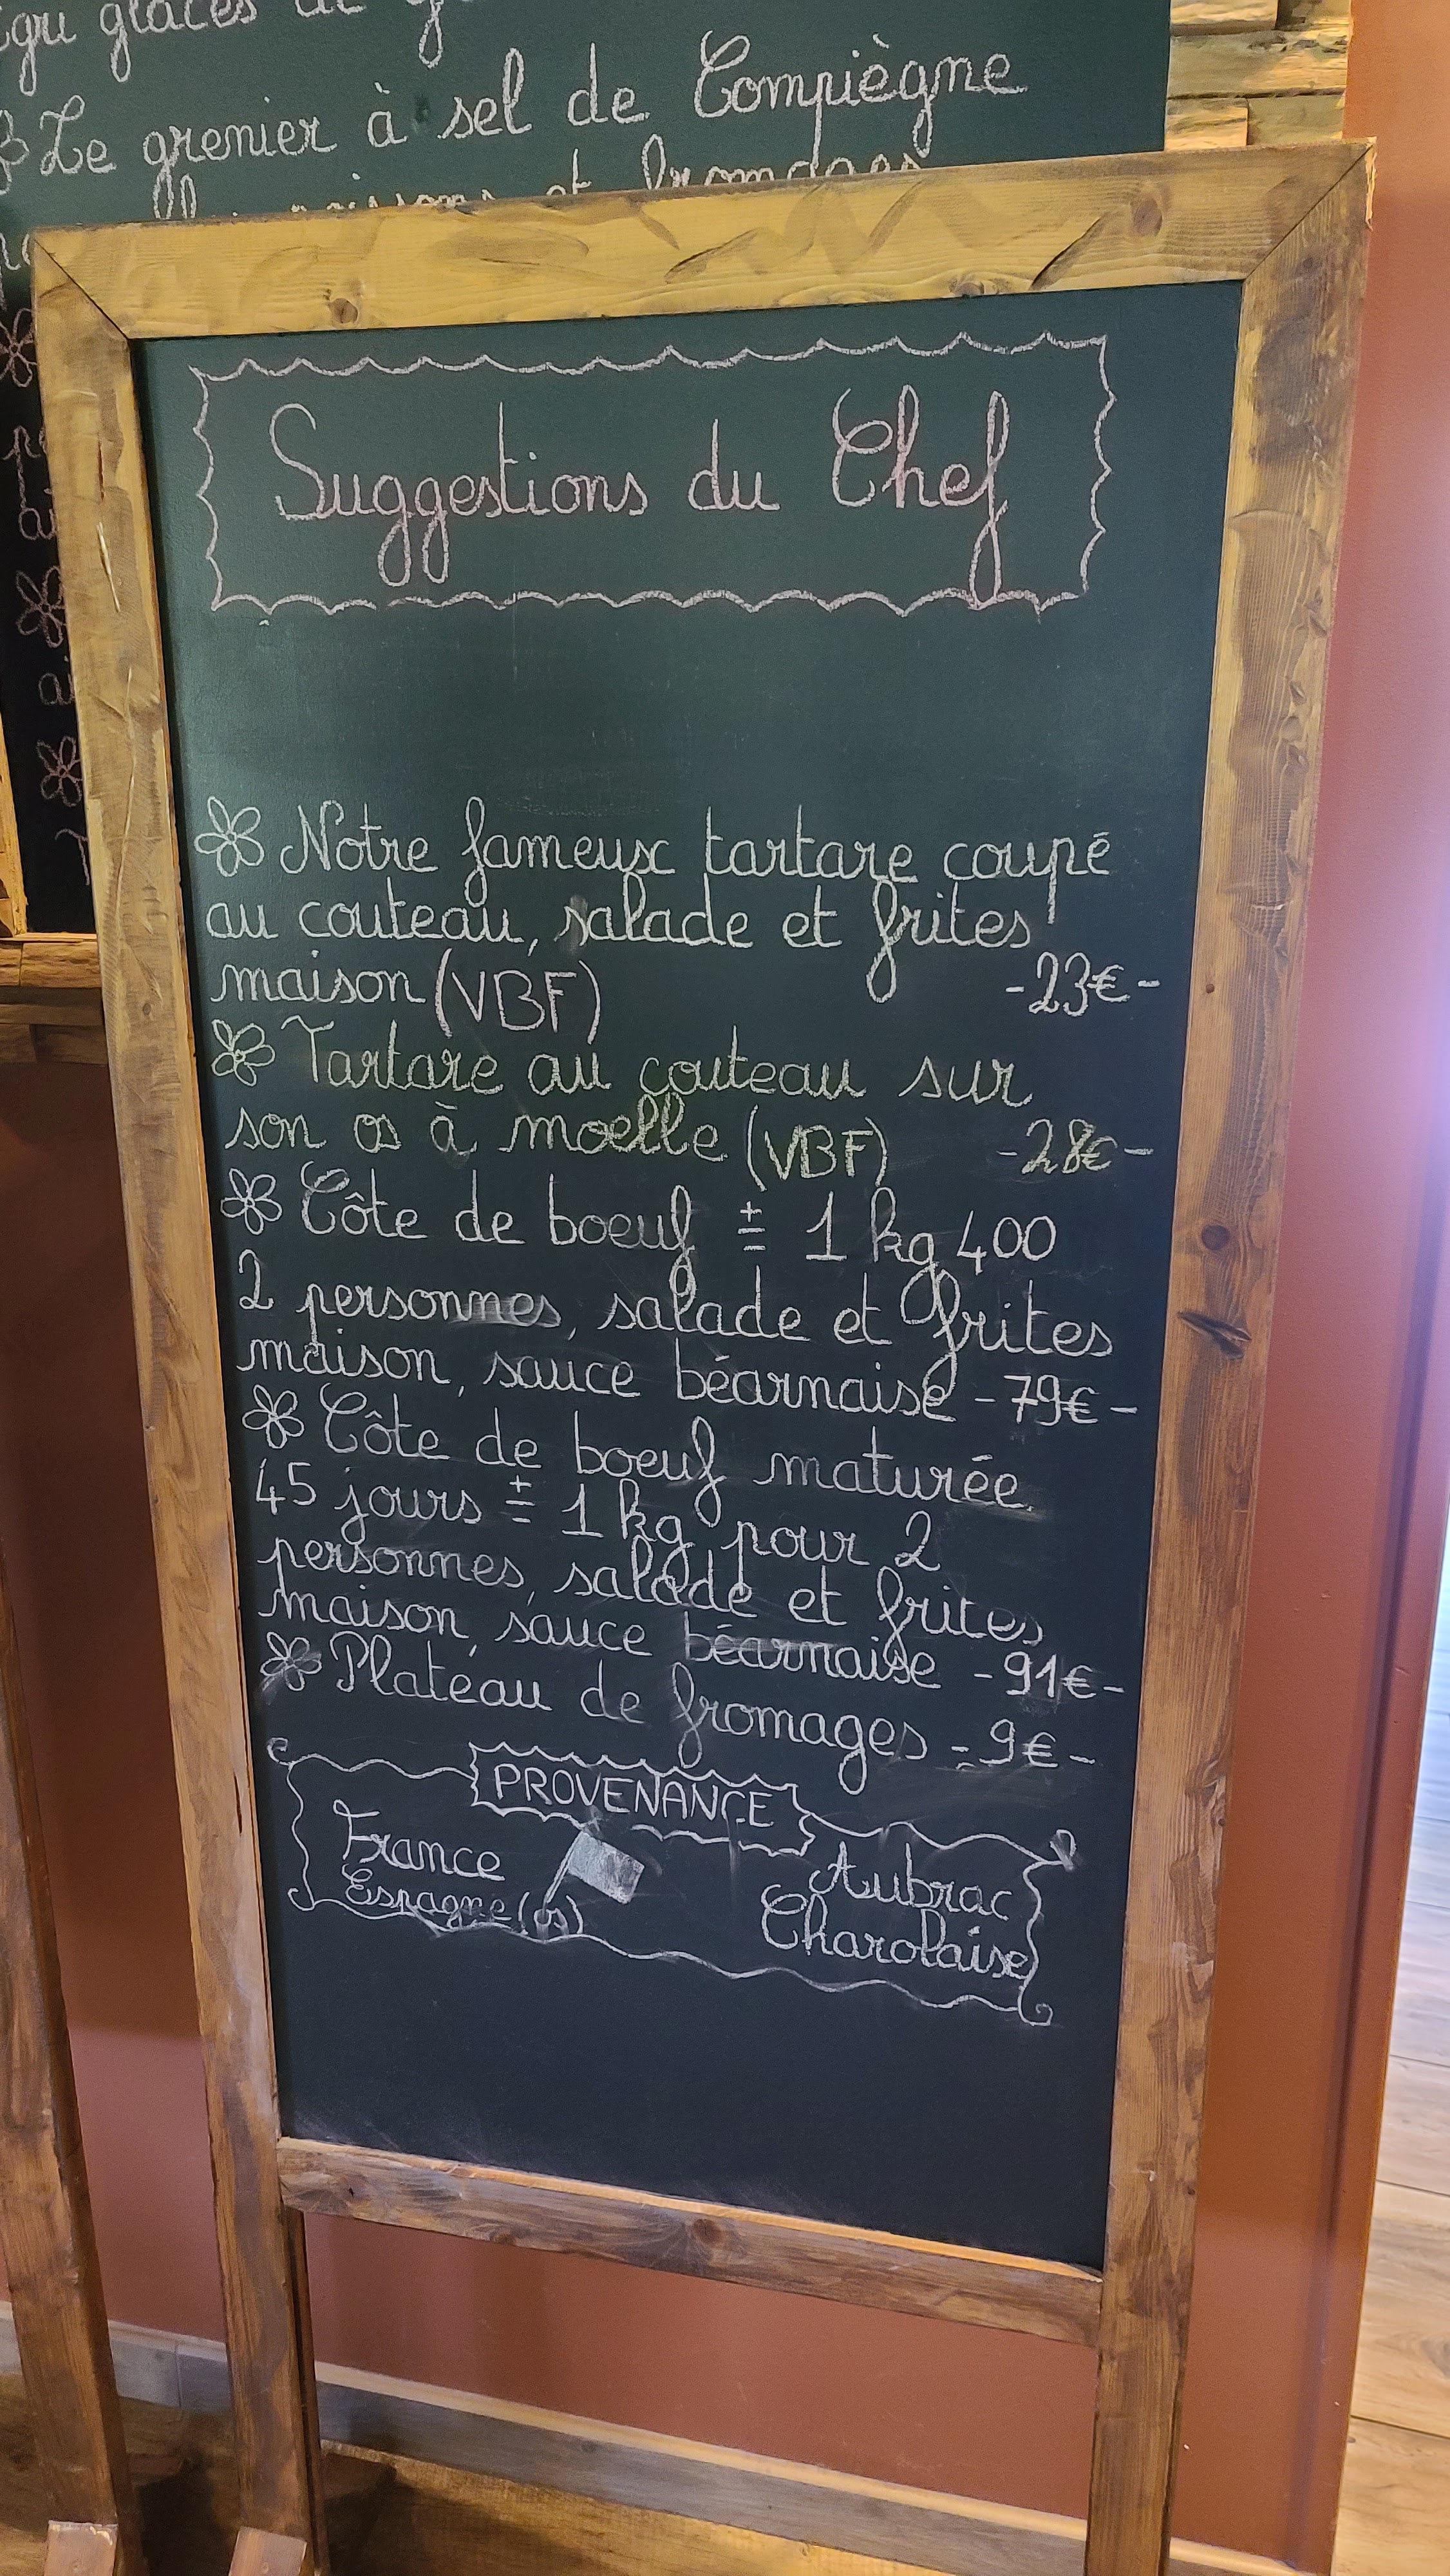 glaces
Le grenier à sel de Compiègne
et fromages
Suggestions du Chef
Notre fameux tartare coupé
au couteau, salade et frites
maison (VBF) -23€-
Tartare au couteau sur
son os à moelle (VBF) -28€-
Côte de boeuf ± 1 kg 400
2 personnes, salade et frites
maison, sauce béarnaise -79€-
Côte de boeuf maturée
45 jours ± 1 kg pour 2
personnes, salade et frites
maison, sauce béarnaise -91€-
Plateau de fromages -9€-
PROVENANCE
France
Espagne (os)
Aubrac
Charolaise